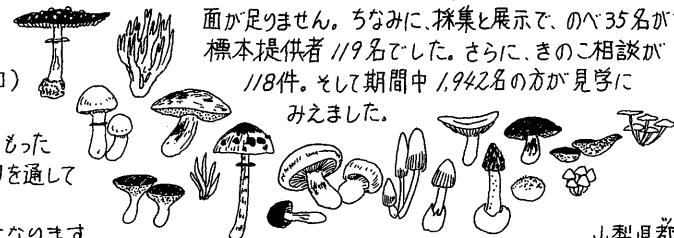 面が足りません。ちなみに、採集と展示で、のべ35名が
標本提供者 119名でした。さらに、きのこ相談が
118件。そして期間中 1,942名の方が見学に
みえました。
もった
を通して
なります
山梨県都